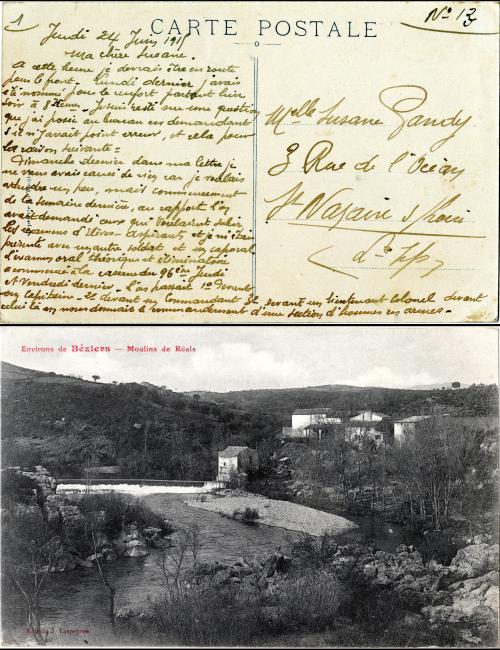 1
CARTE POSTALE
N° 13
Jeudi 24 Juin 1915
Ma chère Susane.
A cette heure je devrais être en route
pour le front. Lundi dernier j'avais
été nommé pour le renfort partant hier
soir à 8 heures. Je suis resté sur une question
que j'ai posée au bureau en demandant
s'il n'y avait point erreur, et cela pour
la raison suivante =
Dimanche dernier dans ma lettre je
ne vous avais causé de rien car je voulais
attendre un peu, mais commencement
de la semaine dernière, au rapport l'on
avait demandé ceux qui voulaient subir
les examens d'élève-Aspirant et je m'étais
présenté avec un autre soldat et un caporal
L'examen oral théorique et éliminatoire
a commencé à la caserne du 96ème Jeudi
et Vendredi dernier. L'on passait 1° devant
un Capitaine. Et devant un Commandant Et devant un lieutenant Colonel devant
celui là on nous donnait le commandement d'une section d'hommes en armes.
Melle Susane Gandy
3 Rue de l'Océan
St Nazaire s/Loire
(L-Infre)
Environs de Béziers — Moulins de Réals
Edition J. Laspeyres